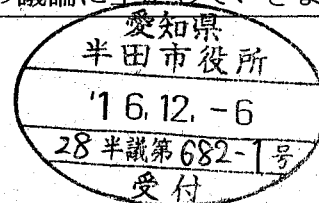 の議論に
愛知県
半田市役所
'16.12.-6
28半議第682-1号
受付